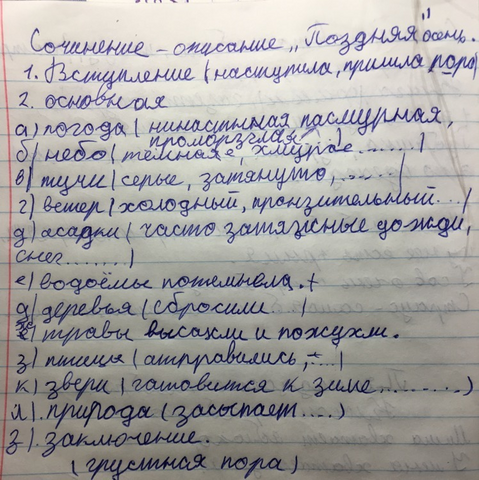 Сочинение – описание „Поздняя осень."
1. Вступление (наступила, пришла пора)
2. основная
а) погода (нинастьная пасмурная,
проморзглая)
б) небо (темнае, хмурае.......)
в) тучи (серые, затянуто,......)
г) ветер (холодный, пронзительный...)
д) асадки (часто затяжные дожди,
снег.......)
е) водоёмы потемнела.
д) деревья (сбросили ...)
ж) травы высахли и пожухли.
з) птицы (атправились, ....)
к) звери (готовится к зиме.........)
л). природа (засыпает....)
3). заключение.
(грустная пора)